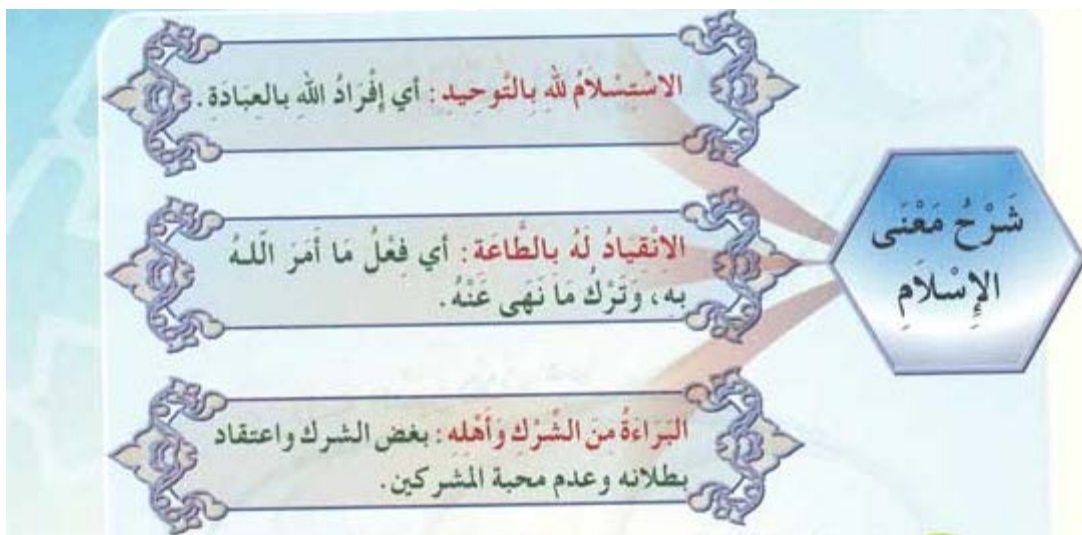 شَرْحُ مَعْنَى
الإِسْلاَمِ
الاسْتِسْلاَمُ للهِ بِالتَّوحِيدِ : أي إِفْرَادُ اللهِ بالعِبَادَةِ .
الاِنْقِيَادُ لَهُ بِالطَّاعَة : أي فِعْلُ مَا أَمَرَ اللَّـهُ
بِهِ ، وَتَرْكُ مَا نَهَى عَنْهُ .
البَرَاءَةُ مِنَ الشِّرْكِ وَأَهْلِهِ : بغض الشرك واعتقاد
بطلانه وعدم محبة المشركين .